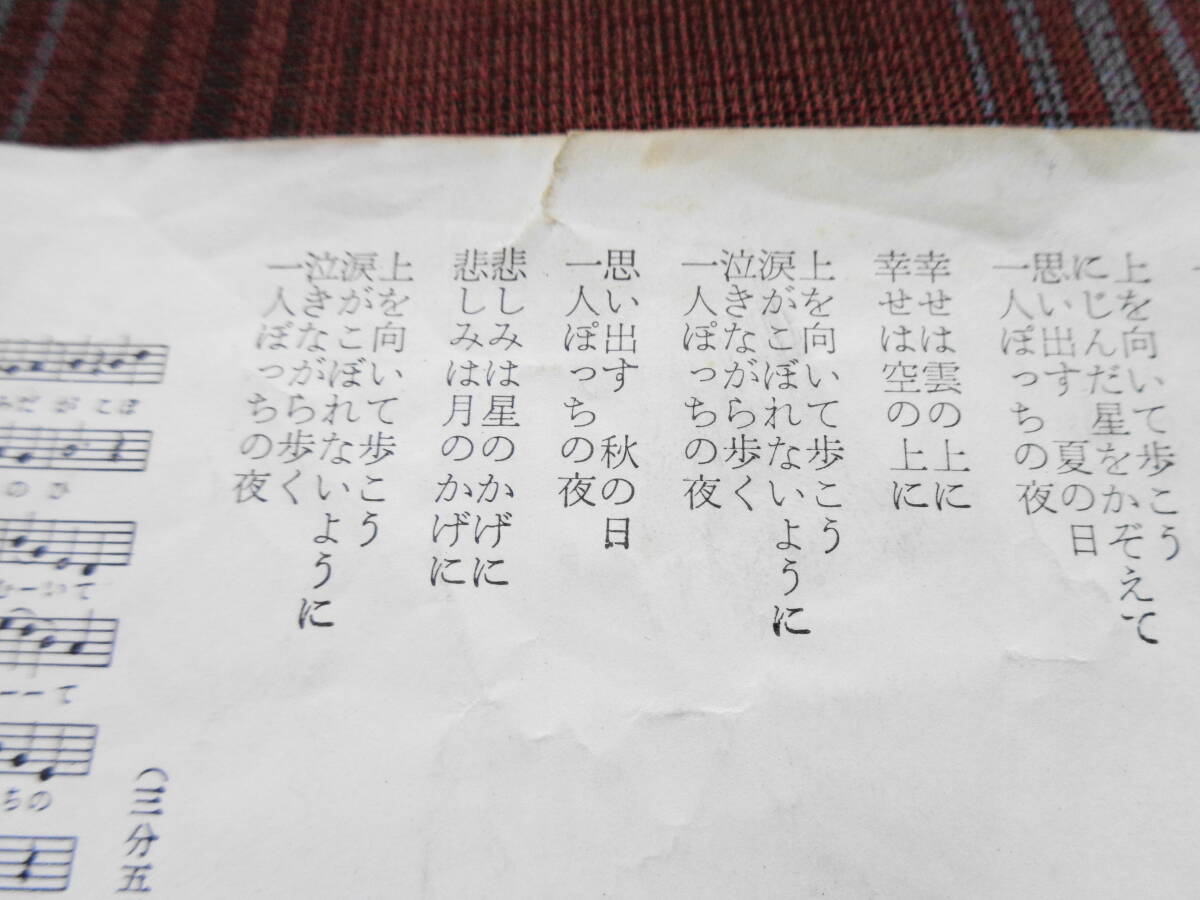 上を向いて歩こう
にじんだ星をかぞえて
思い出す 夏の日
一人ぽっちの夜
幸せは雲の上に
幸せは空の上に
上を向いて歩こう
涙がこぼれないように
泣きながら歩く
一人ぽっちの夜
思い出す 秋の日
一人ぽっちの夜
悲しみは星のかげに
悲しみは月のかげに
上を向いて歩こう
涙がこぼれないように
泣きながら歩く
一人ぽっちの夜
(三分五
みだがこぼ
のひ
むーいて
ーーて
ちの